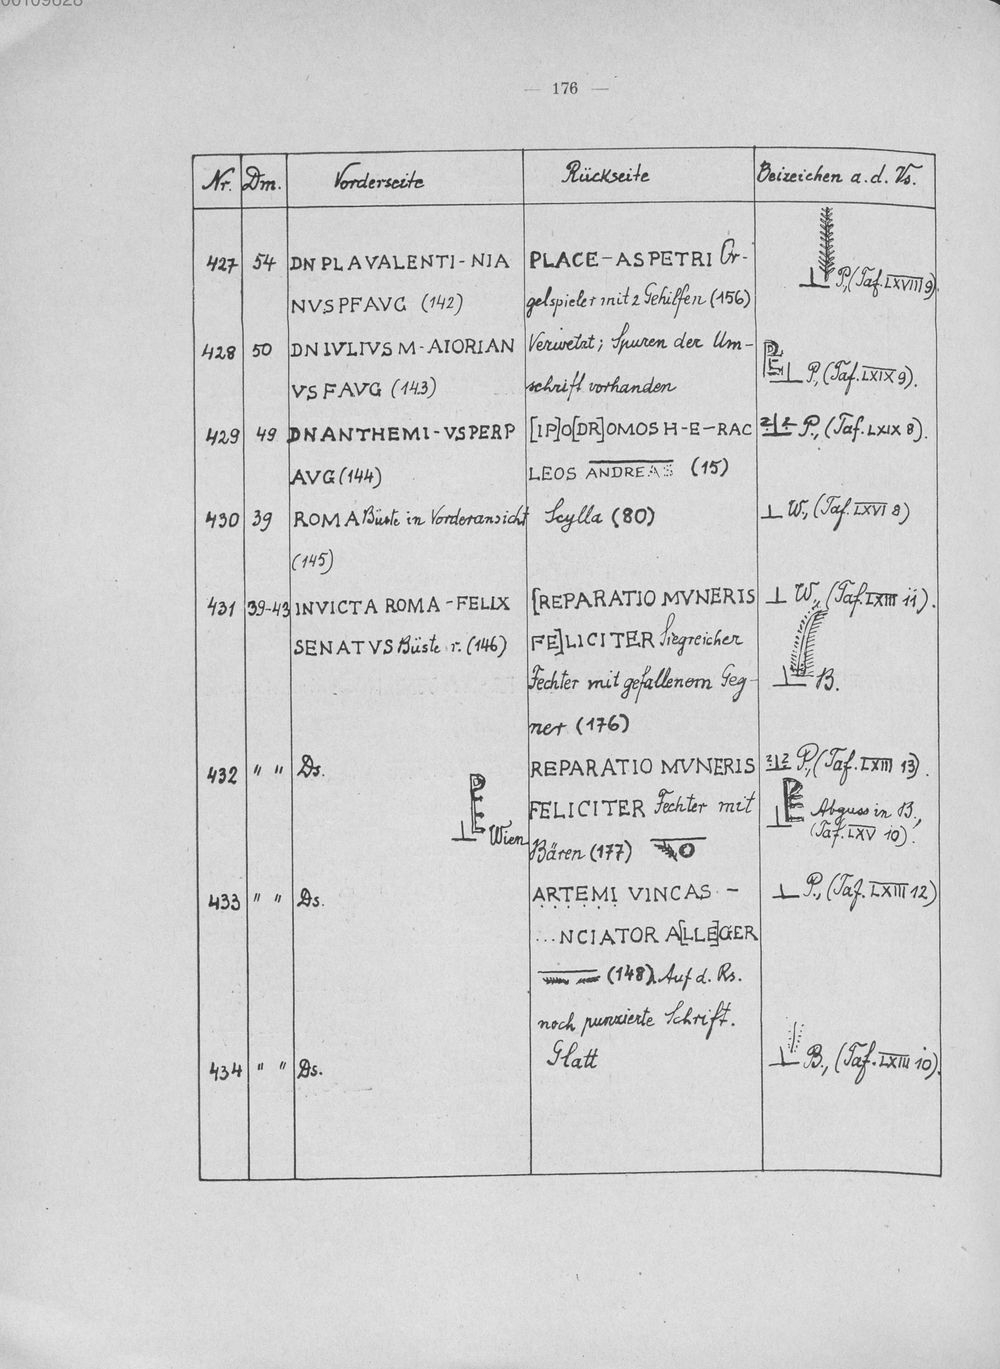 00109828
— 176 —
Nr. Dm. Vorderseite Rückseite Beizeichen a. d. Vs.
427 54 DN PLAVALENTI-NIA PLACE-ASPETRI Or-
P., (Taf. LXVIII 9).
NVSPFAVG (142) gelspieler mit 2 Gehilfen (156)
428 50 DN IVLIVS M-AIORIAN Verwetzt; Spuren der Um-
P., (Taf. LXIX 9).
VS FAVG (143) schrift vorhanden
429 49 DNANTHEMI-VSPERP [IP]O[DR]OMOS H-E-RAC P., (Taf. LXIX 8).
AVG (144) LEOS ANDREAS (15)
430 39 ROMA Büste in Vorderansicht Scylla (80) W., (Taf. LXVI 8)
(145)
431 39-43 INVICTA ROMA-FELIX [REPARATIO MVNERIS W., (Taf. LXIII 11).
SENATVS Büste r. (146) FE]LICITER Siegreicher
Fechter mit gefallenem Geg- B.
ner (176)
432 " " Ds. REPARATIO MVNERIS P., (Taf. LXIII 13).
FELICITER Fechter mit PE Abguss in B.,
PE Wien Bären (177) (Taf. LXV 10).
433 " " Ds. ARTEMI VINCAS - P., (Taf. LXIII 12)
...NCIATOR A[LLE]GER
(148). Auf d. Rs.
noch punzierte Schrift.
434 " " Ds. Glatt B., (Taf. LXIII 10).